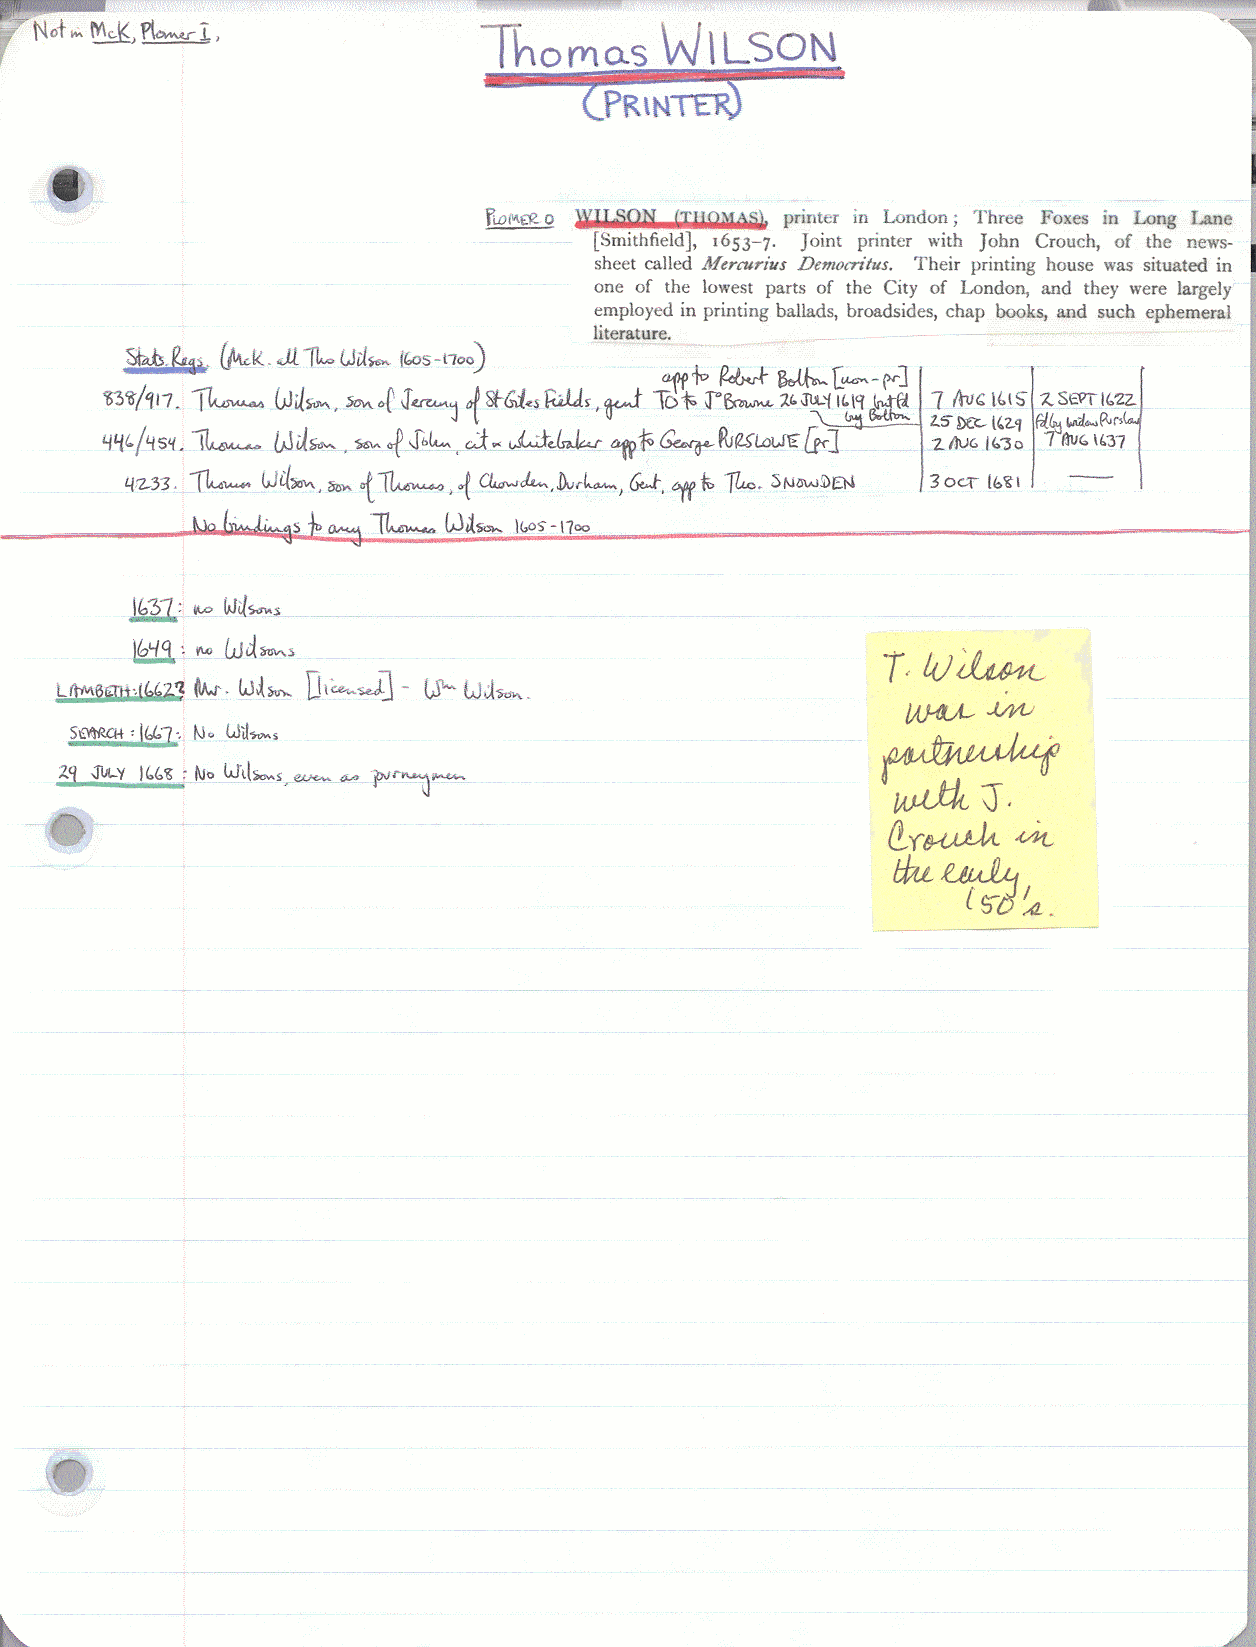 Not in McK, Plomer I,
Thomas WILSON
(PRINTER)
PLOMER O WILSON (THOMAS), printer in London; Three Foxes in Long Lane
[Smithfield], 1653-7. Joint printer with John Crouch, of the news-
sheet called Mercurius Democritus. Their printing house was situated in
one of the lowest parts of the City of London, and they were largely
employed in printing ballads, broadsides, chap books, and such ephemeral
literature.
Stats. Regs. (McK. all Tho Wilson 1605-1700)
app to Robert Bolton [non-pr]
838/917. Thomas Wilson, son of Jeremy of St Giles Fields, gent TO to Jº Browne 26 JULY 1619 but fd 7 AUG 1615 2 SEPT 1622
by Bolton 25 DEC 1629 fd by widow Purslow
446/454. Thomas Wilson, son of John, cit & whitebaker app to George PURSLOWE [pr] 2 AUG 1630 7 AUG 1637
4233. Thomas Wilson, son of Thomas, of Chowden, Durham, Gent, app to Tho. SNOWDEN 3 OCT 1681 —
No bindings to any Thomas Wilson 1605-1700
1637: no Wilsons
1649: no Wilsons
LAMBETH:1662? Mr. Wilson [licensed] - Wm Wilson.
SEARCH:1667: No Wilsons
29 JULY 1668: No Wilsons, even as journeymen
T. Wilson
was in
partnership
with J.
Crouch in
the early
'50's.